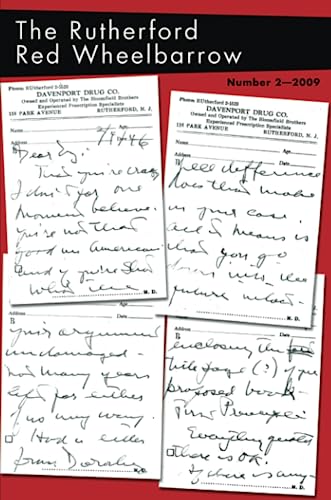 The Rutherford
Red Wheelbarrow
Number 2—2009
Phones: RUtherford 2-1620
DAVENPORT DRUG CO.
Owned and Operated by The Bloomfield Brothers
Experienced Prescription Specialists
124 PARK AVENUE RUTHERFORD, N. J.
Name Age
Address Date
Dear
That you're crazy
I don't for one
moment believe.
you're not that
good an American
and if you're
what
M. D.
Phones: RUtherford 2-1620
DAVENPORT DRUG CO.
Owned and Operated by The Bloomfield Brothers
Experienced Prescription Specialists
124 PARK AVENUE RUTHERFORD, N. J.
Name Age
Address Date
difference
does that make
in your case.
all it means is
that you go
down into the
future
M. D.
Address
R Date
your argument
undamaged
many years
left for either
of us any way.
M. D.
Address
R Date
enclosing the
title page (?) of your
proposed book
Everything
there is OK.
If there is any
M. D.